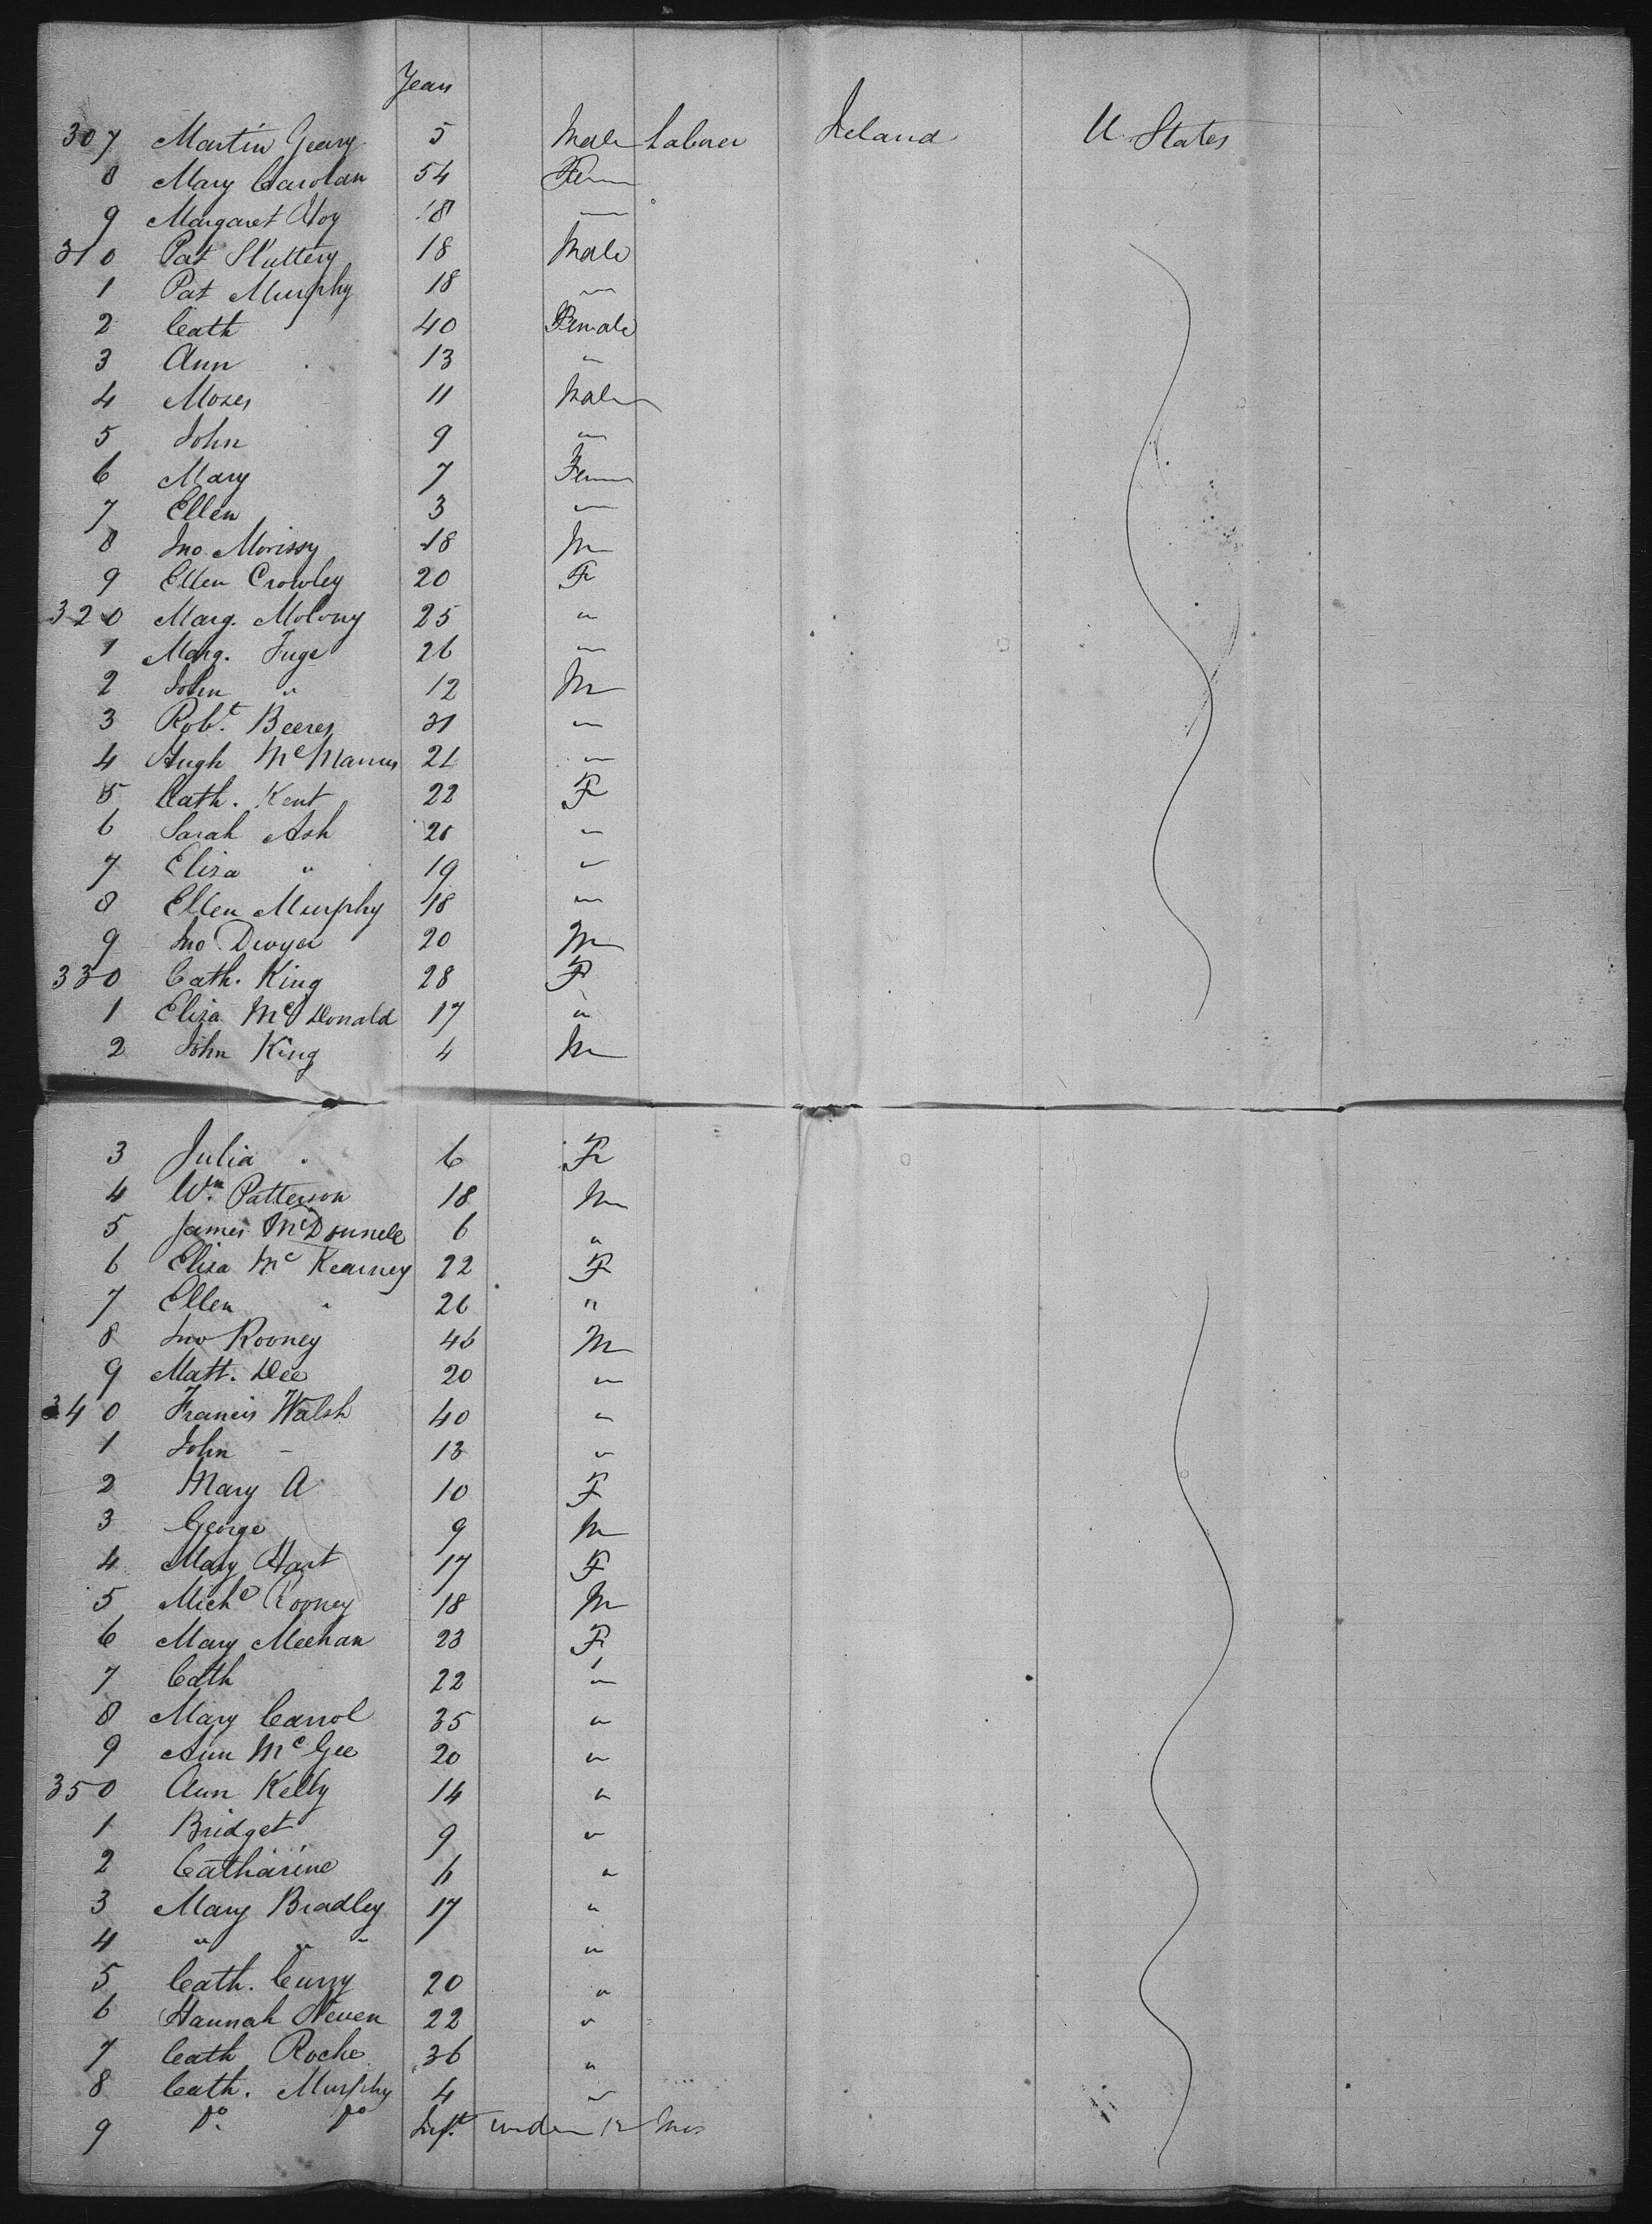 Years
307 Martin Geary 5 Male Laborer Ireland U. States
8 Mary Carolan 54 Fem
9 Margaret Hoy 18 —
310 Pat Sluttery 18 Male
1 Pat Murphy 18 —
2 Cath 40 Female
3 Ann 13 "
4 Moses 11 Male
5 John 9 "
6 Mary 7 Fem
7 Ellen 3 "
8 Jno. Morissy 18 M
9 Ellen Crowley 20 F
320 Marg. Molony 25 "
1 Marg. Fuge 26 "
2 John " 12 M
3 Robt. Beeres 31 "
4 Hugh McManus 21 "
5 Cath. Kent 22 F
6 Sarah Ash "
7 Eliza " 19 "
8 Ellen Murphy 18 "
9 Jno Dwyer 20 M
330 Cath. King 28 F
1 Eliza McDonald 17 "
2 John King 4 M
3 Julia 6 F
4 Wm. Patterson 18 M
5 James McDonnell 6 "
6 Eliza McKearney 22 F
7 Ellen " 26 "
8 Jno Rooney 46 M
9 Matt. Dee 20 "
340 Francis Walsh 40 "
1 John - 13 "
2 Mary A 10 F
3 George 9 M
4 Mary Hart 17 F
5 Michl Rooney 18 M
6 Mary Meehan 23 F
7 Cath 22 "
8 Mary Carrol 35 "
9 Ann McGee 20 "
350 Ann Kelly 14 "
1 Bridget 9 "
2 Catharine 6 "
3 Mary Bradley 17 "
4 " " " "
5 Cath. Curry 20 "
6 Hannah Neven 22 "
7 Cath Roche 36 "
8 Cath. Murphy 4 "
9 Do. Do Inft. under 12 Mos